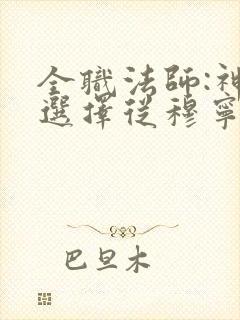 全職法師:神
選擇從穆寧
巴旦木